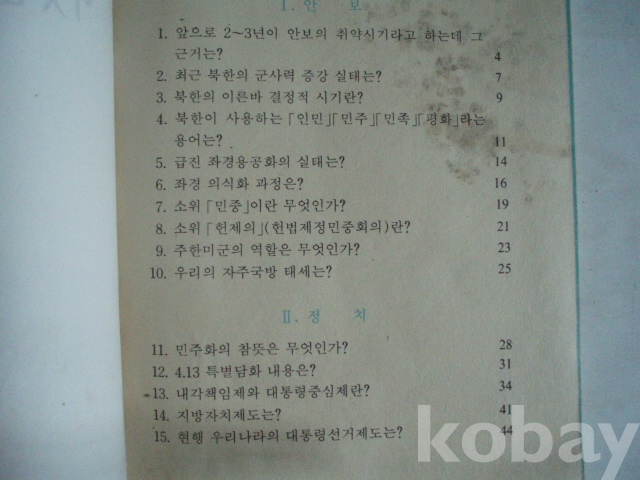 I. 안 보
1. 앞으로 2~3년이 안보의 취약시기라고 하는데 그
근거는? 4
2. 최근 북한의 군사력 증강 실태는? 7
3. 북한의 이른바 결정적 시기란? 9
4. 북한이 사용하는「인민」「민주」「민족」「평화」라는
용어는? 11
5. 급진 좌경용공화의 실태는? 14
6. 좌경 의식화 과정은? 16
7. 소위「민중」이란 무엇인가? 19
8. 소위「헌제의」(헌법제정민중회의)란? 21
9. 주한미군의 역할은 무엇인가? 23
10. 우리의 자주국방 태세는? 25
II. 정 치
11. 민주화의 참뜻은 무엇인가? 28
12. 4.13 특별담화 내용은? 31
13. 내각책임제와 대통령중심제란? 34
14. 지방자치제도는? 41
15. 현행 우리나라의 대통령선거제도는? 44
kobay